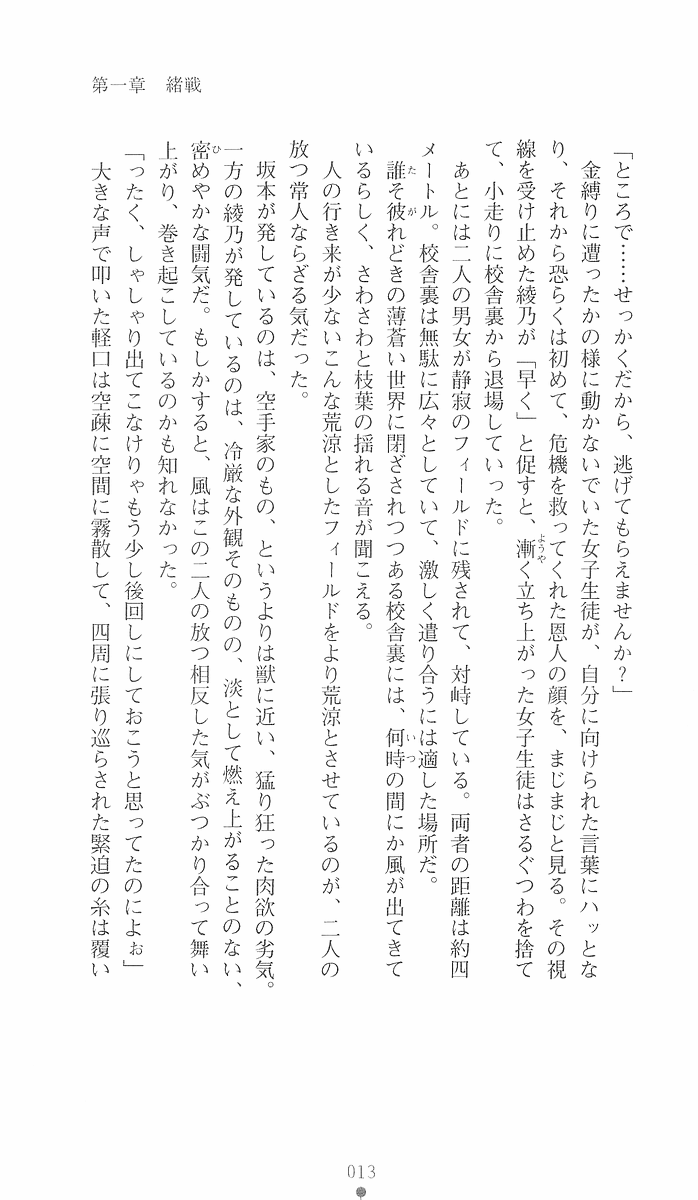 第一章　緒戦
「ところで……せっかくだから、逃げてもらえませんか？」
　金縛りに遭ったかの様に動かないでいた女子生徒が、自分に向けられた言葉にハッとな
り、それから恐らくは初めて、危機を救ってくれた恩人の顔を、まじまじと見る。その視
線を受け止めた綾乃が「早く」と促すと、漸く立ち上がった女子生徒はさるぐつわを捨て
て、小走りに校舎裏から退場していった。
　あとには二人の男女が静寂のフィールドに残されて、対峙している。両者の距離は約四
メートル。校舎裏は無駄に広々としていて、激しく遣り合うには適した場所だ。
　誰そ彼れどきの薄蒼い世界に閉ざされつつある校舎裏には、何時の間にか風が出てきて
いるらしく、さわさわと枝葉の揺れる音が聞こえる。
　人の行き来が少ないこんな荒涼としたフィールドをより荒涼とさせているのが、二人の
放つ常人ならざる気だった。
　坂本が発しているのは、空手家のもの、というよりは獣に近い、猛り狂った肉欲の劣気。
一方の綾乃が発しているのは、冷厳な外観そのものの、淡として燃え上がることのない、
密めやかな闘気だ。もしかすると、風はこの二人の放つ相反した気がぶつかり合って舞い
上がり、巻き起こしているのかも知れなかった。
「ったく、しゃしゃり出てこなけりゃもう少し後回しにしておこうと思ってたのによぉ」
　大きな声で叩いた軽口は空疎に空間に霧散して、四周に張り巡らされた緊迫の糸は覆い
013